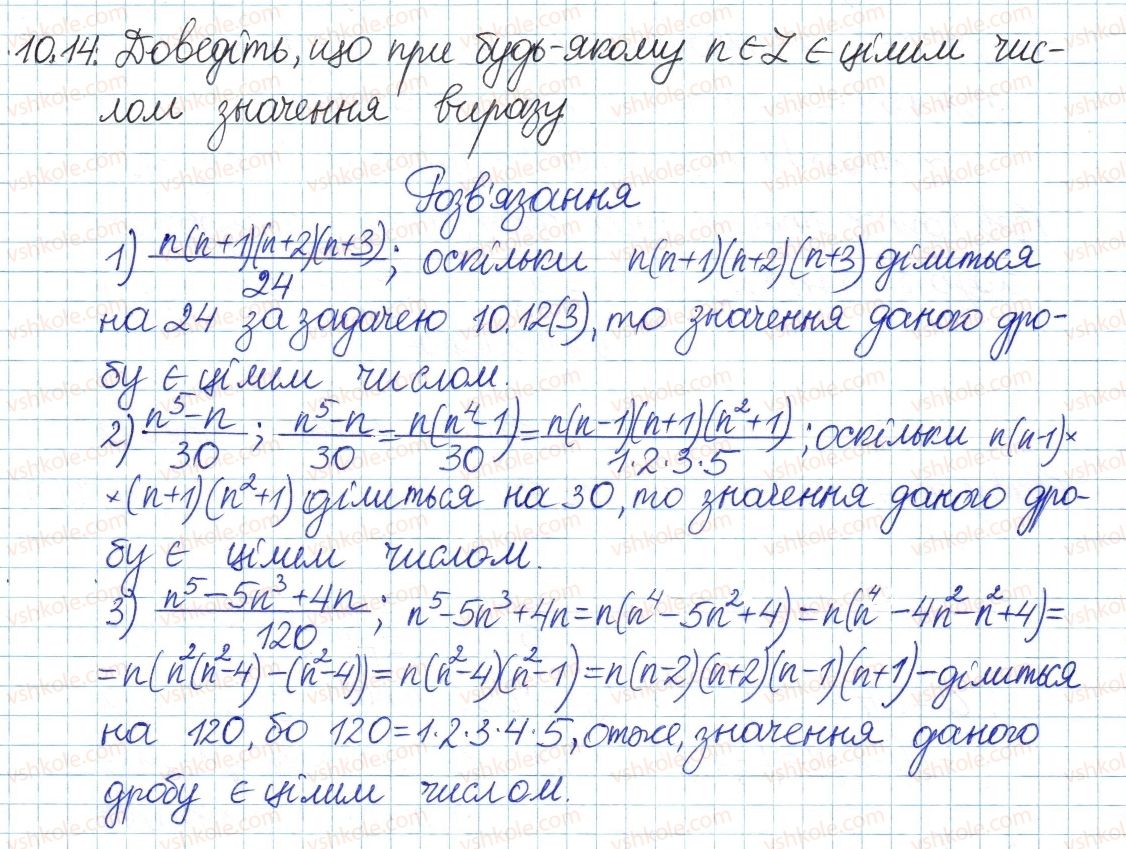 10.14. Доведіть, що при будь-якому n ∈ Z є цілим чис-
лом значення виразу
Розв'язання
1) n(n+1)(n+2)(n+3)/24; оскільки n(n+1)(n+2)(n+3) ділиться
на 24 за задачею 10.12(3), то значення даного дро-
бу є цілим числом.
2) n⁵-n/30; n⁵-n/30 = n(n⁴-1)/30 = n(n-1)(n+1)(n²+1)/1·2·3·5; оскільки n(n-1)×
×(n+1)(n²+1) ділиться на 30, то значення даного дро-
бу є цілим числом.
3) n⁵-5n³+4n/120; n⁵-5n³+4n=n(n⁴-5n²+4)=n(n⁴-4n²-n²+4)=
=n(n²(n²-4)-(n²-4))=n(n²-4)(n²-1)=n(n-2)(n+2)(n-1)(n+1)-ділиться
на 120, бо 120=1·2·3·4·5, отже, значення даного
дробу є цілим числом.